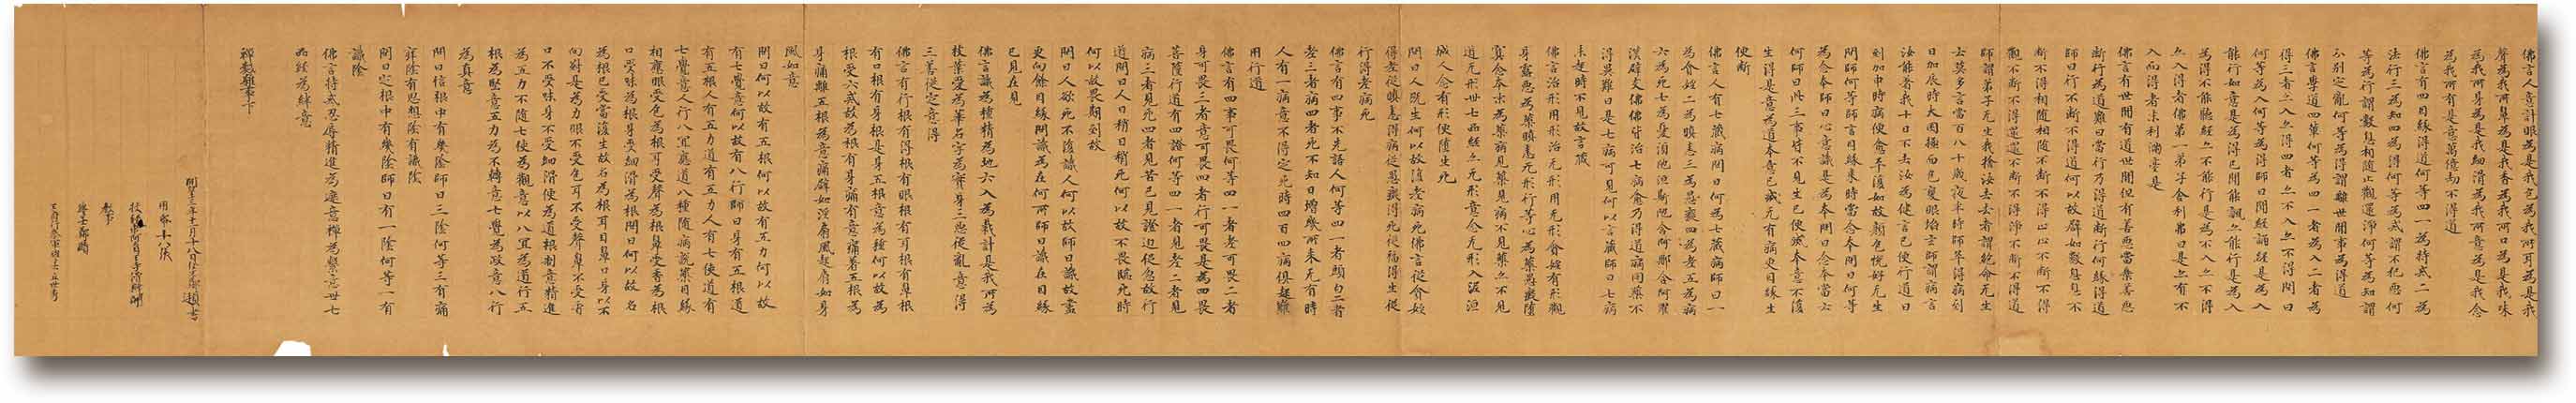 佛言人意計眼為是我色為我所耳為是我
聲為我所鼻為是我香為我所口為是我味
為我所身為是我細滑為我所意為是我念
為我所有是意萬億劫不得道
佛言有四因緣得道何等四一為持戒二為
法行三為知四為得何等為戒謂不犯惡何
等為行謂數息相隨止觀還淨何等為知謂
分別定亂何等為得謂離世間事為得道
佛言學道四輩何等為四一者為入二者為
得三者亦入亦得四者亦不入亦不得問曰
何等為入何等為得師曰聞經誦經是為入
能行如意是為得已聞能諷亦能行是為入
為得不能聽經亦不能行是為不入亦不得
亦入得者佛第一弟子舍利弗曰是亦有不
入而得者朱利滿臺是
佛言有世間有道世間但有善惡當棄善惡
斷行為道難曰當行乃得道斷行何緣得道
師曰行不斷不得道何以故辟如數息息不
斷不得相隨相隨不斷不得止止不斷不得
觀觀不斷不得還還不斷不得淨淨不斷不得道
師謂弟子无生我捨汝去去者謂乾會无生
去莫多言當百八十歲夜半時師卒得病到
日加辰時大困極面色變眼陷士師謂病言
汝能者我十日不去汝為健言已便行道日
到加中時病便愈平復如故顏色悅好无生
問師何等師言因緣來時當念本問曰何等
為念本師曰心意識是為本問曰念本當云
何師曰此三事皆不見生已便滅本意不復
生得是意為道本意已滅无有病更因緣生
便斷
佛言人有七藏病問曰何為七藏病師曰一
為貪婬二為瞋恚三為愚癡四為老五為病
六為死七為憂須陀洹斯陀含阿那含阿羅
漢辟支佛佛皆治七病愈乃得道病同藥不
得異難曰是七病可見何以言藏師曰七病
未起時不見故言藏
佛言治形用形治无形用无形貪婬有形觀
身露惡為藥瞋恚无形行等心為藥愚癡墮
冥念本末為藥病見藥見病不見藥亦不見
道无形卅七品經亦无形意念无形入泥洹
城人念有形便墮生死
問曰人既生何以故墮老病死佛言從貪婬
得老從瞋恚得病從愚癡得死從福得生從
行得老病死
佛言有四事不先語人何等四一者頭白二者
老三者病四者死不知日增幾所來无有時
人有一病意不得定死時四百四病俱起難
用行道
佛言有四事可畏何等四一者老可畏二者
身可畏三者意可畏四者行可畏是為四畏
菩薩行道有四證何等四一者見老二者見
病三者見死四者見苦已見證迫促忽故行
道問曰人日稍日稍死何以故不畏臨死時
何以故畏期到故
問曰人欲死不復識人何以故師曰識故盡
更向餘因緣問識為在何所師曰識在因緣
已見在見
佛言識為種精為地六入為栽計是我所為
枝葉受為華名字為實身三惡從亂意得
三善從定意得
佛言有行根有得根有眼根有耳根有鼻根
有口根有身根是身五根意為種何以故為
根受六衰故為根有身痛有意痛著五根為
身痛離五根為意痛辟如淫扇風起扇如身
風如意
問曰何以故有五根何以故有五力何以故
有七覺意何以故有八行師曰身有五根道
有五根人有五力道有五力人有七使道有
七覺意人行八冥應道八種隨病說藥因緣
相應眼受色為根耳受聲為根鼻受香為根
口受味為根身受細滑為根問曰何以故名
為根已受當復生故名為根耳目鼻口身以不
向對是為力眼不受色耳不受聲鼻不受香
口不受味身不受細滑便為道根制意精進
為五力不隨七使為觀意以八冥為道行五
根為堅意五力為不轉意七覺為政意八行
為真意
問曰信根中有幾陰師曰三陰何等三有痛
痒陰有思想陰有識陰
問曰定根中有幾陰師曰有一陰何等一有
識陰
佛言持戒忍辱精進為遮意禪為繫意卅七
品經為絆意
禪數雜事下
開皇三年十二月十八日經生鄭頲書
用紙十八張
教事
學士鄭賾